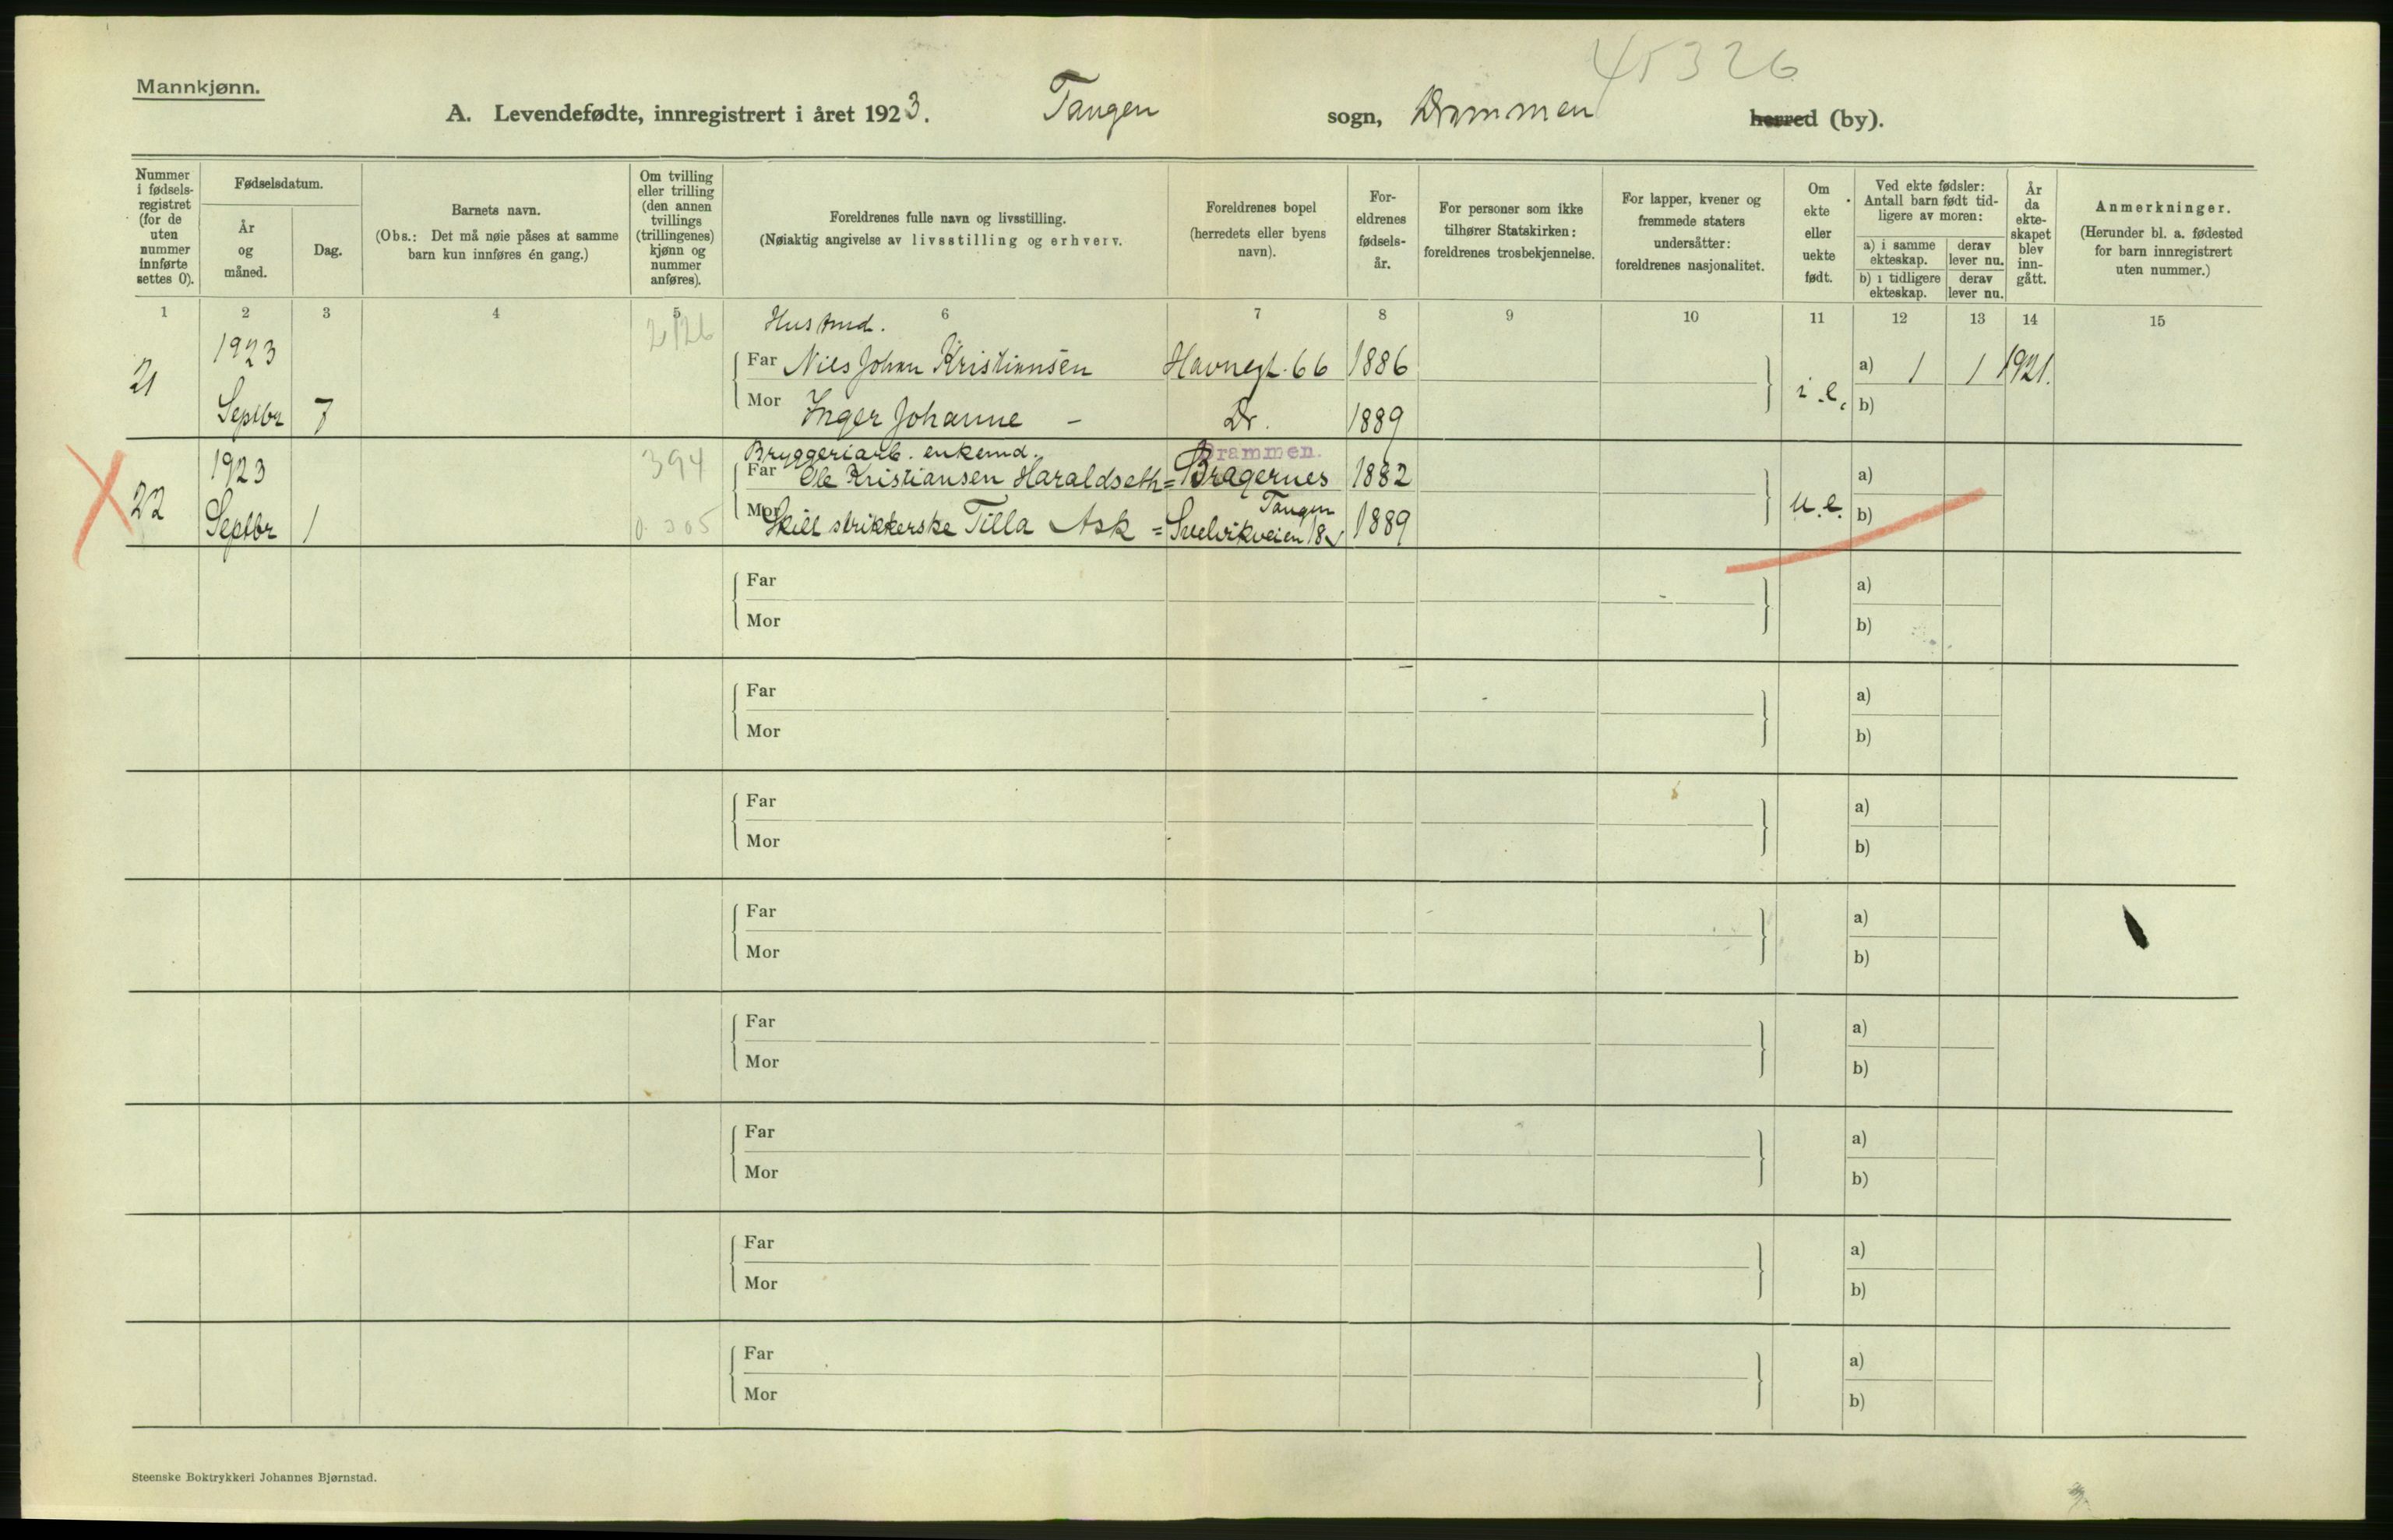 45326
Mannkjønn.
A. Levendefødte, innregistrert i året 1923. Tangen sogn, Drammen herred (by).
Nummer i fødsels-registret (for de uten nummer innførte settes 0).
Fødselsdatum.
År og måned.
Dag.
Barnets navn.
(Obs.: Det må nøie påses at samme barn kun innføres én gang.)
Om tvilling eller trilling (den annen tvillings (trillingenes) kjønn og nummer anføres).
Foreldrenes fulle navn og livsstilling.
(Nøiaktig angivelse av livsstilling og erhverv.
Foreldrenes bopel (herredets eller byens navn).
For-eldrenes fødsels-år.
For personer som ikke tilhører Statskirken: foreldrenes trosbekjennelse.
For lapper, kvener og fremmede staters undersåtter: foreldrenes nasjonalitet.
Om ekte eller uekte født.
Ved ekte fødsler: Antall barn født tid-ligere av moren:
a) i samme ekteskap.
derav lever nu.
b) i tidligere ekteskap.
derav lever nu.
År da ekte-skapet blev inn-gått.
Anmerkninger.
(Herunder bl. a. fødested for barn innregistrert uten nummer.)
1 2 3 4 5 6 7 8 9 10 11 12 13 14 15
21 1923 Septbr 7
Far Nils Johan Kristiansen Havnegt. 66 1886 i.e. a) 1 1 1921.
Mor Inger Johanne - Dr. 1889 b)
394 Bryggeriarb. enkemd. Drammen.
22 1923 Septbr 1
Far Ole Kristiansen Haraldseth = Bragernes 1882 u.e. a)
Tangen
Mor Skill strikkerske Tilla Ask = Svelvikveien 18 1889 b)
Far a)
Mor b)
Far a)
Mor b)
Far a)
Mor b)
Far a)
Mor b)
Far a)
Mor b)
Far a)
Mor b)
Far a)
Mor b)
Far a)
Mor b)
Steenske Boktrykkeri Johannes Bjørnstad.